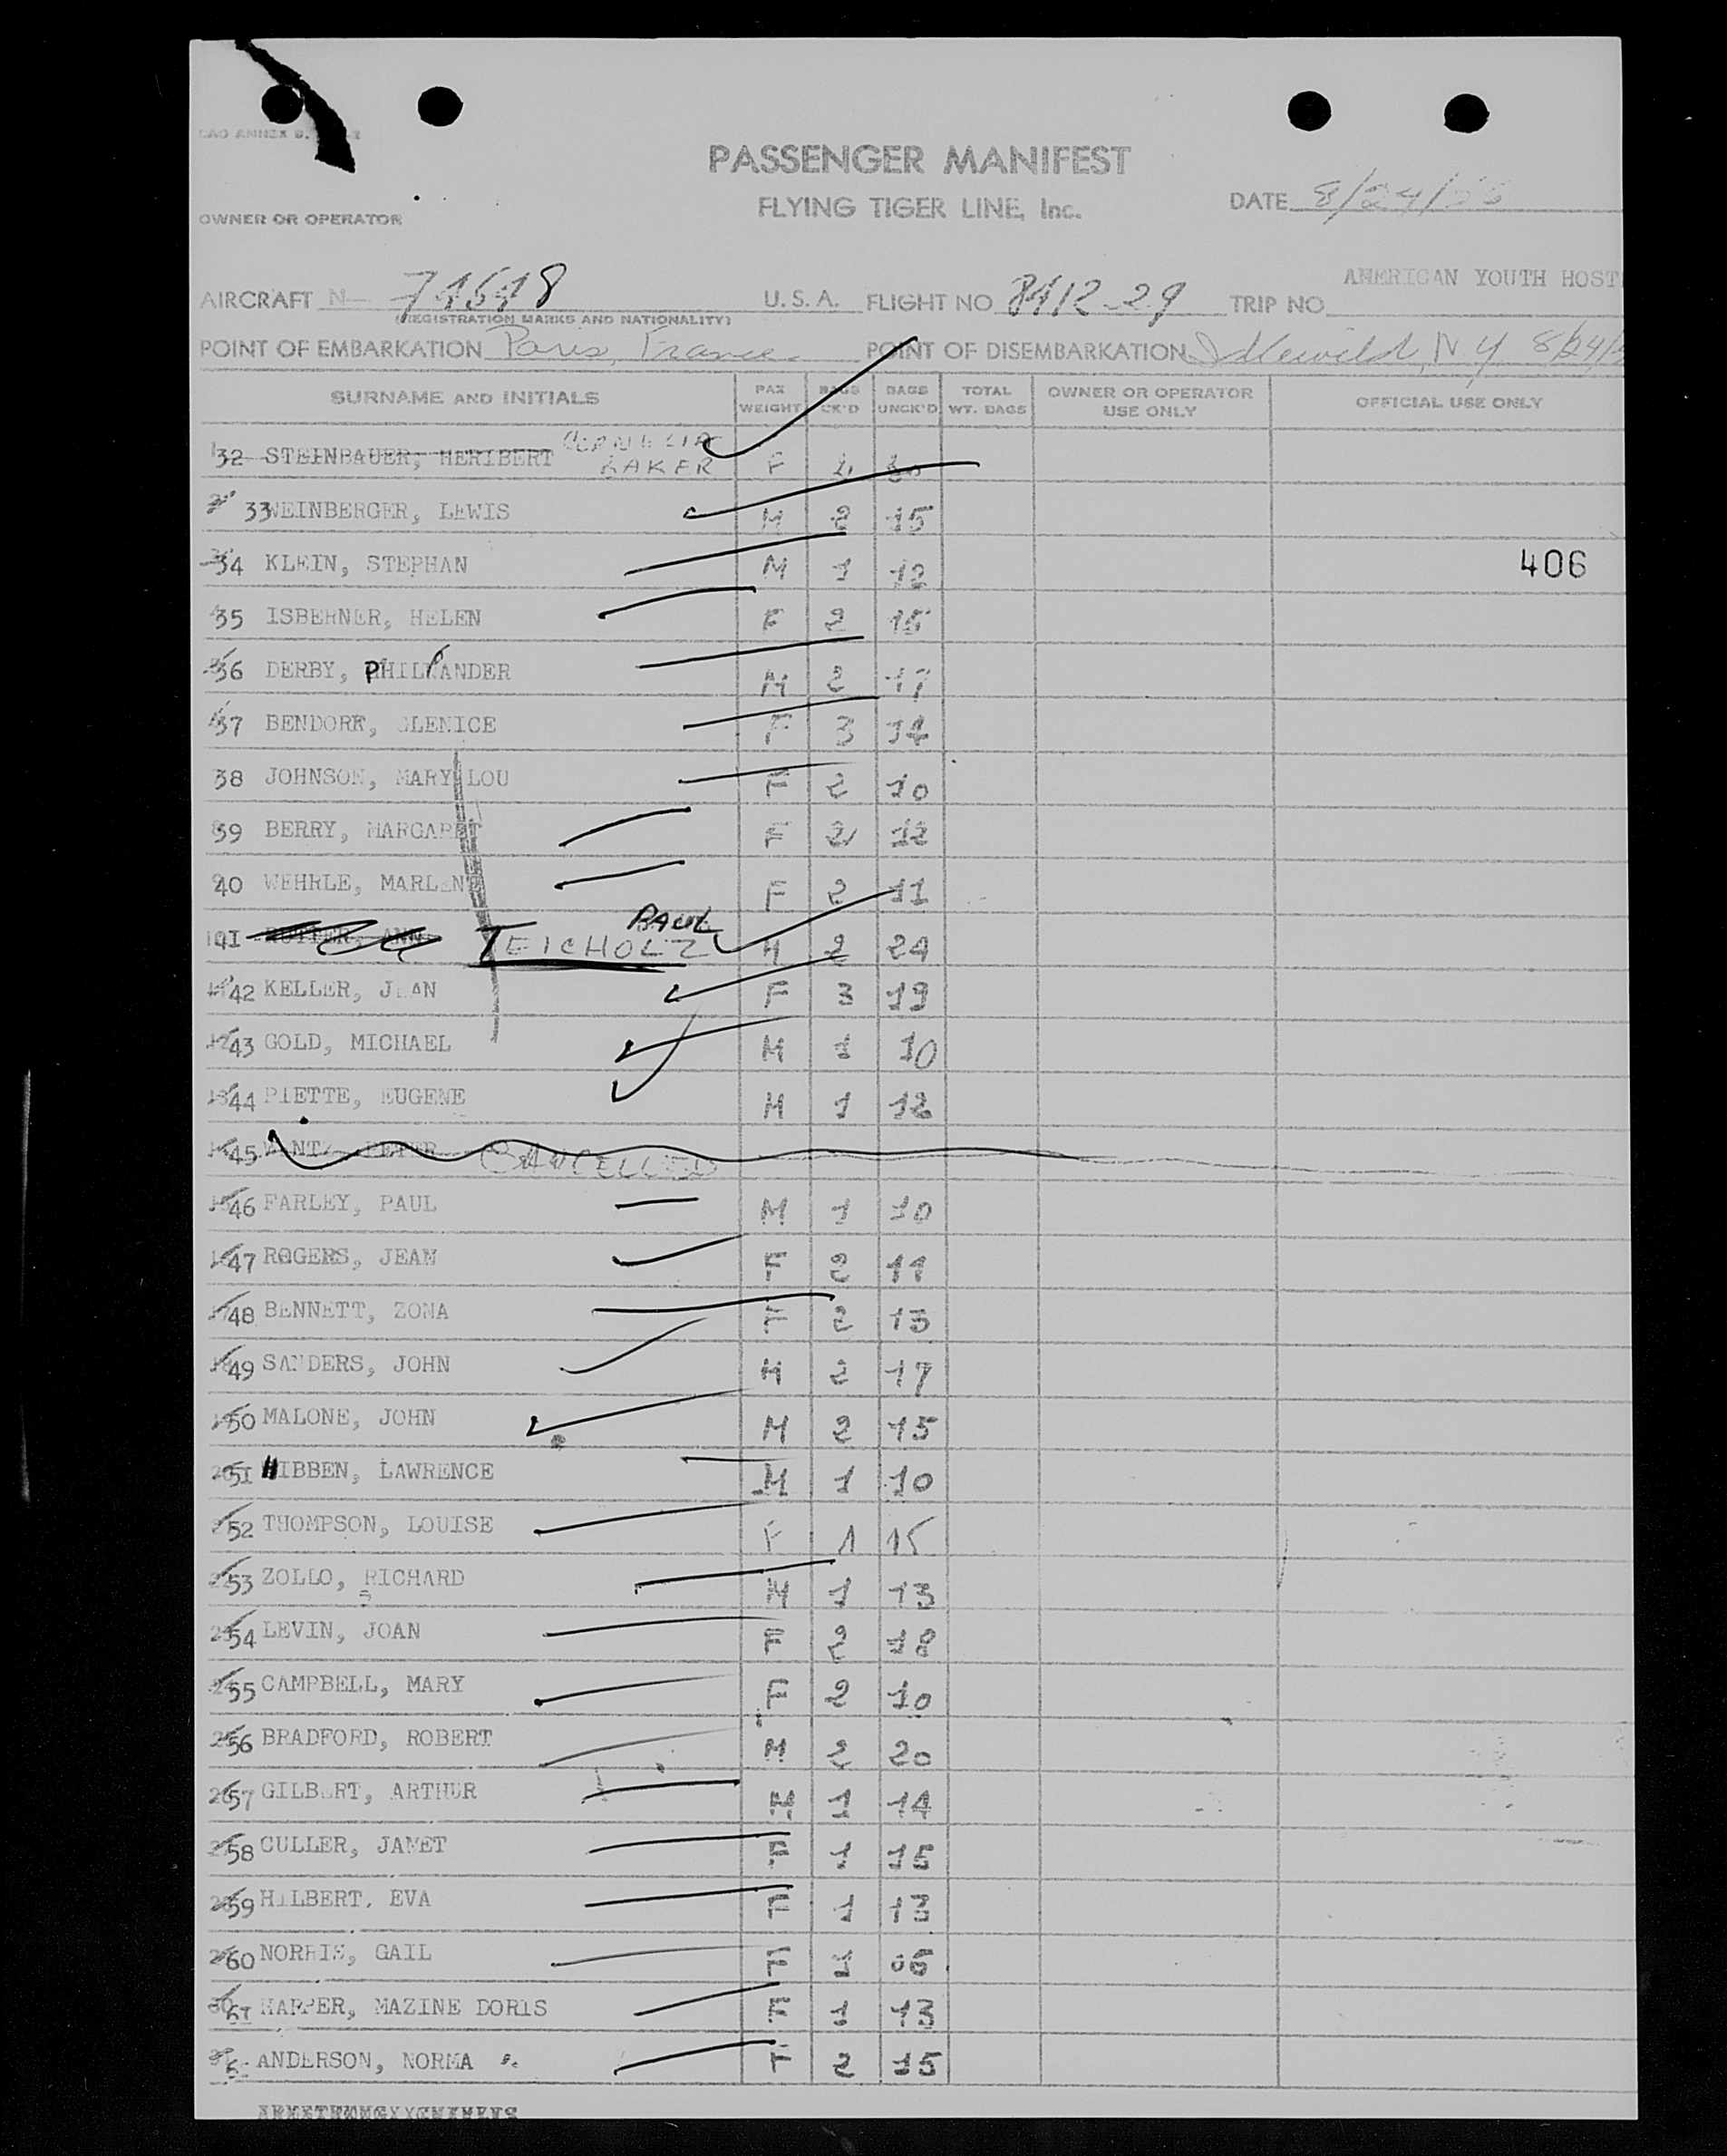 PASSENGER MANIFEST
FLYING TIGER LINE, Inc.
DATE 8/24/
OWNER OR OPERATOR
AMERICAN YOUTH HOST
AIRCRAFT N- U.S.A. FLIGHT NO 8412-29 TRIP NO
(REGISTRATION MARKS AND NATIONALITY)
POINT OF EMBARKATION Paris, France. POINT OF DISEMBARKATION Idlewild, N Y 8/24/
SURNAME AND INITIALS PAX WEIGHT BAGS CK'D BAGS UNCK'D TOTAL WT. BAGS OWNER OR OPERATOR USE ONLY OFFICIAL USE ONLY
32 STEINBAUER, HERIBERT CORNELIA BAKER F
33 WEINBERGER, LEWIS M 2 15
34 KLEIN, STEPHAN M 1 12 406
35 ISBERNER, HELEN F 2 15
36 DERBY, PHILANDER M 2 17
37 BENDORK, GLENICE F 3 14
38 JOHNSON, MARY LOU F 2 10
39 BERRY, MARGARET F 2 12
40 WEHRLE, MARLENE F 2 11
41 ANN TEICHOLZ PAUL M 2 24
42 KELLER, JEAN F 3 19
43 GOLD, MICHAEL M 1 10
44 PIETTE, EUGENE M 1 12
45 PETER CANCELLED
46 FARLEY, PAUL M 1 10
47 ROGERS, JEAN F 2 11
48 BENNETT, ZONA F 2 13
49 SANDERS, JOHN M 2 17
50 MALONE, JOHN M 2 15
51 HIBBEN, LAWRENCE M 1 10
52 THOMPSON, LOUISE F 1 15
53 ZOLLO, RICHARD M 1 13
54 LEVIN, JOAN F 2 18
55 CAMPBELL, MARY F 2 10
56 BRADFORD, ROBERT M 2 20
57 GILBERT, ARTHUR M 1 14
58 CULLER, JANET F 1 15
59 HILBERT, EVA F 1 13
60 NORRIS, GAIL F 1 06
61 HARPER, MAZINE DORIS F 1 13
ANDERSON, NORMA F 2 15